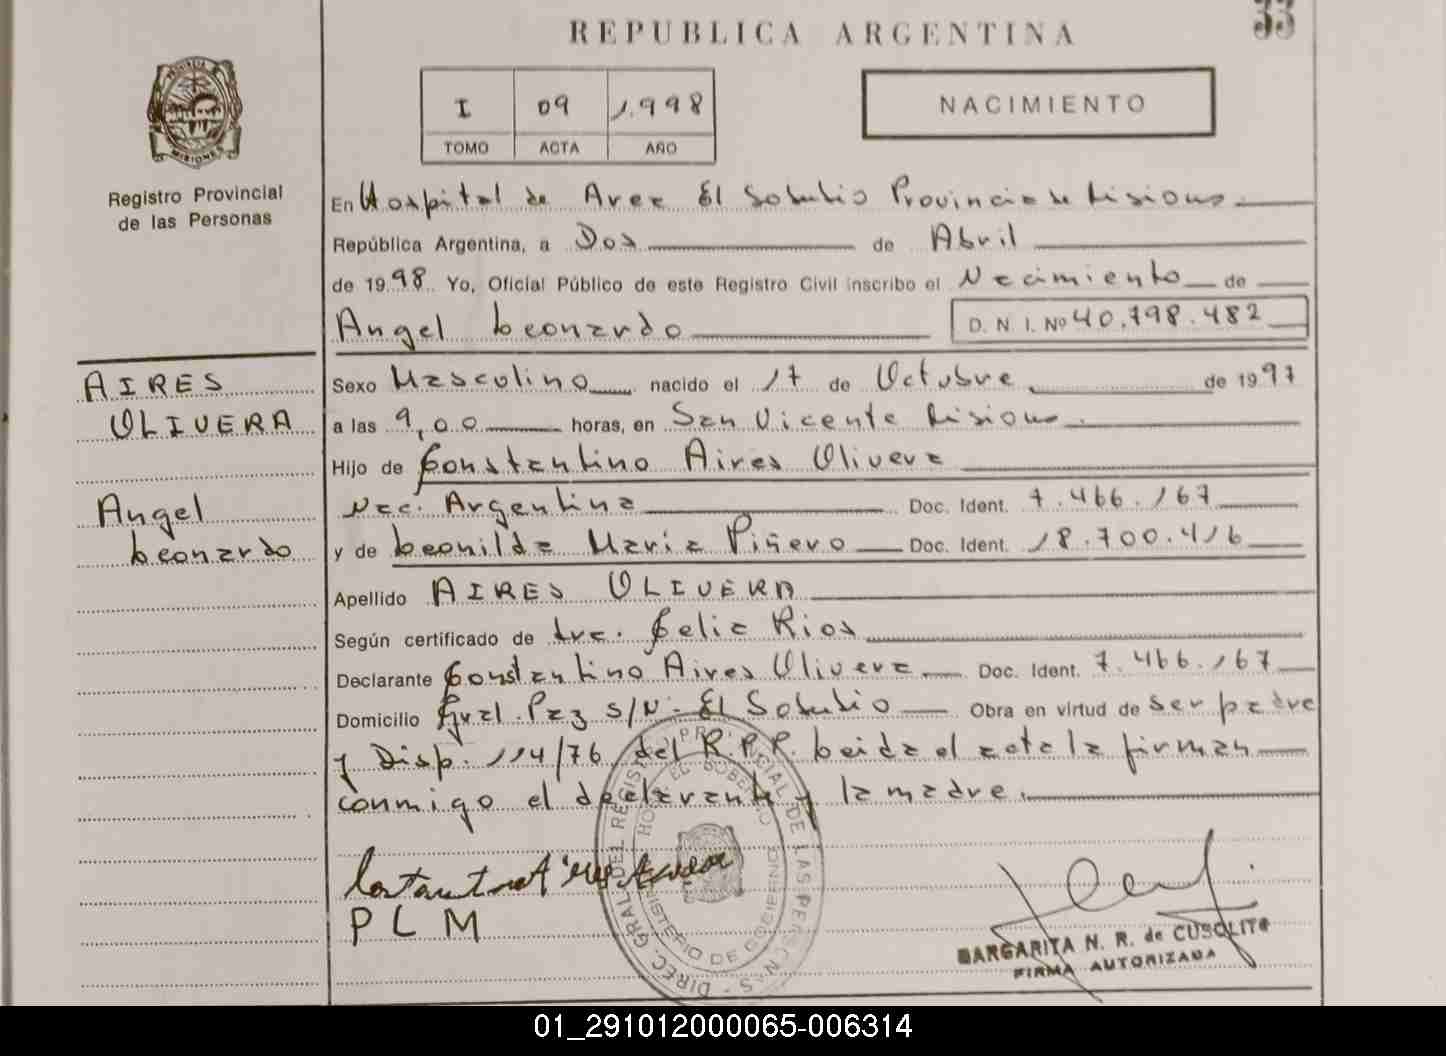 33
REPUBLICA ARGENTINA
I 09 1.998
TOMO ACTA AÑO
NACIMIENTO
MISIONES
Registro Provincial
de las Personas
En Hospital de Area El Soberbio Provincia de Misiones.
República Argentina, a Dos de Abril
de 1998 Yo, Oficial Público de este Registro Civil inscribo el Nacimiento de
Angel Leonardo D. N. I. Nº 40.798.482
AIRES
OLIVERA
Angel
Leonardo
Sexo Masculino nacido el 17 de Octubre de 1997
a las 9,00 horas, en San Vicente Misiones.
Hijo de Constantino Aires Olivera
Nac. Argentina Doc. Ident. 7.466.167
y de Leonilda Maria Piñero Doc. Ident. 18.700.416
Apellido AIRES OLIVERA
Según certificado de Felic Rios
Declarante Constantino Aires Olivera Doc. Ident. 7.466.167
Domicilio Gral. Paz S/Nº El Soberbio Obra en virtud de ser padre
y Disp. 114/76 del R.P.P. Leida el acta la firman
conmigo el declarante y la madre.
DIREC. GRAL. DEL REGIST. PROVINCIAL DE LAS PERSONAS
HOSP. EL SOBERBIO
MINISTERIO DE GOBIERNO
P L M
MARGARITA N. R. de CUSOLITO
FIRMA AUTORIZADA
01_291012000065-006314